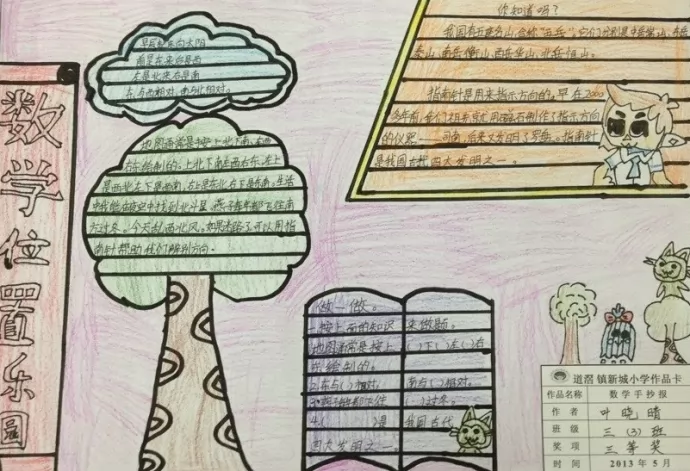 数学位置乐园
早晨起来向太阳
前是东来后是西
左是北来右是南
东与西相对，南与北相对。
地图通常是按上北下南、左西
右东绘制的。上北下南左西右东，左上
是西北左下是西南，右上是东北右下是东南，生活
中我能在夜空中找到北斗星
方过冬。今天刮西北风。如果迷路了可以用指
南针帮助我们辨别方向。
你知道吗？
我国有五座名山，合称“五岳”，它们分别是中岳嵩山、东岳
泰山、南岳衡山、西岳华山、北岳恒山。
指南针是用来指示方向的。早在2000
多年前，我们祖先就用磁石制作了指示方向
的仪器——司南，后来又发明了罗盘。指南针
是我国古代四大发明之一。
做一做。
一、按上面的知识来做题。
地图通常是按上（ ）下（ ）左（ ）右
（ ）绘制的。
2.东与（ ）相对，南与（ ）相对。
（ ）过冬。
4.（ ）是我国古代
四大发明之一
道滘镇新城小学作品卡
作品名称 数学手抄报
作者 叶晓晴
班级 三（3）班
奖项 三等奖
时间 2013年5月